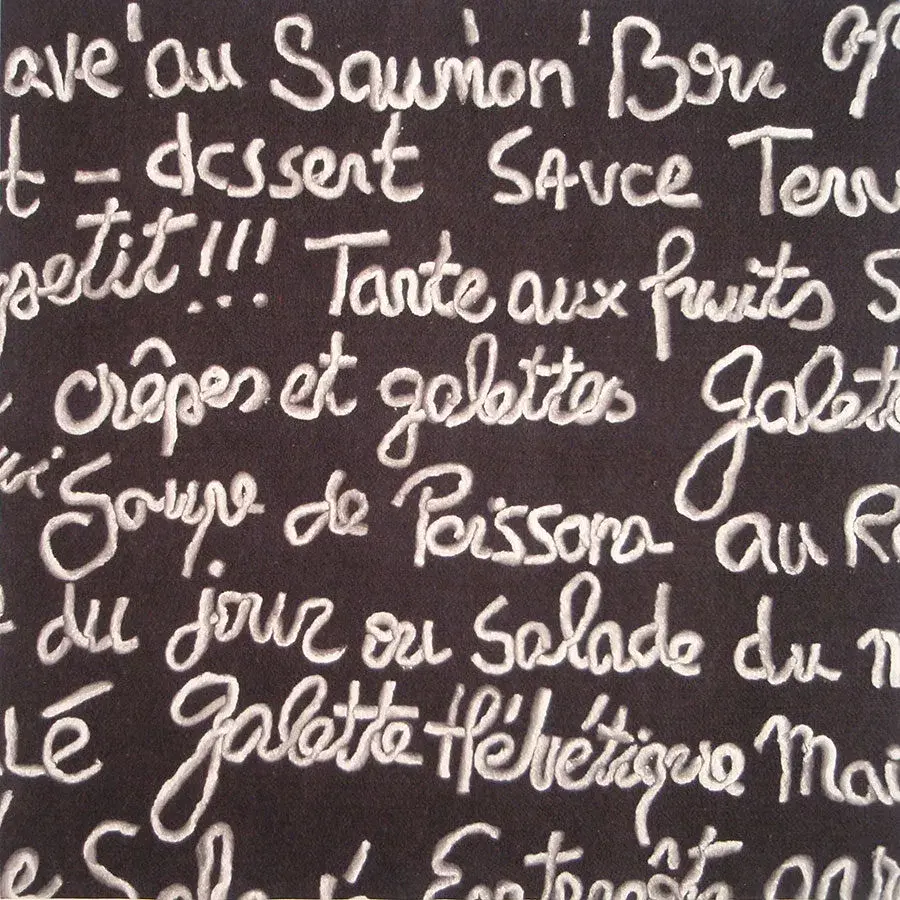 ave'au Saumon' Bon ap
t - dessert SAUCE Terr
petit!!! Tarte aux fruits S
crêpes et galettes Galett
Soupe de Poissons au R
du jour ou Salade du m
LÉ galette Hélvétique Mai
e Sala Entrecôte